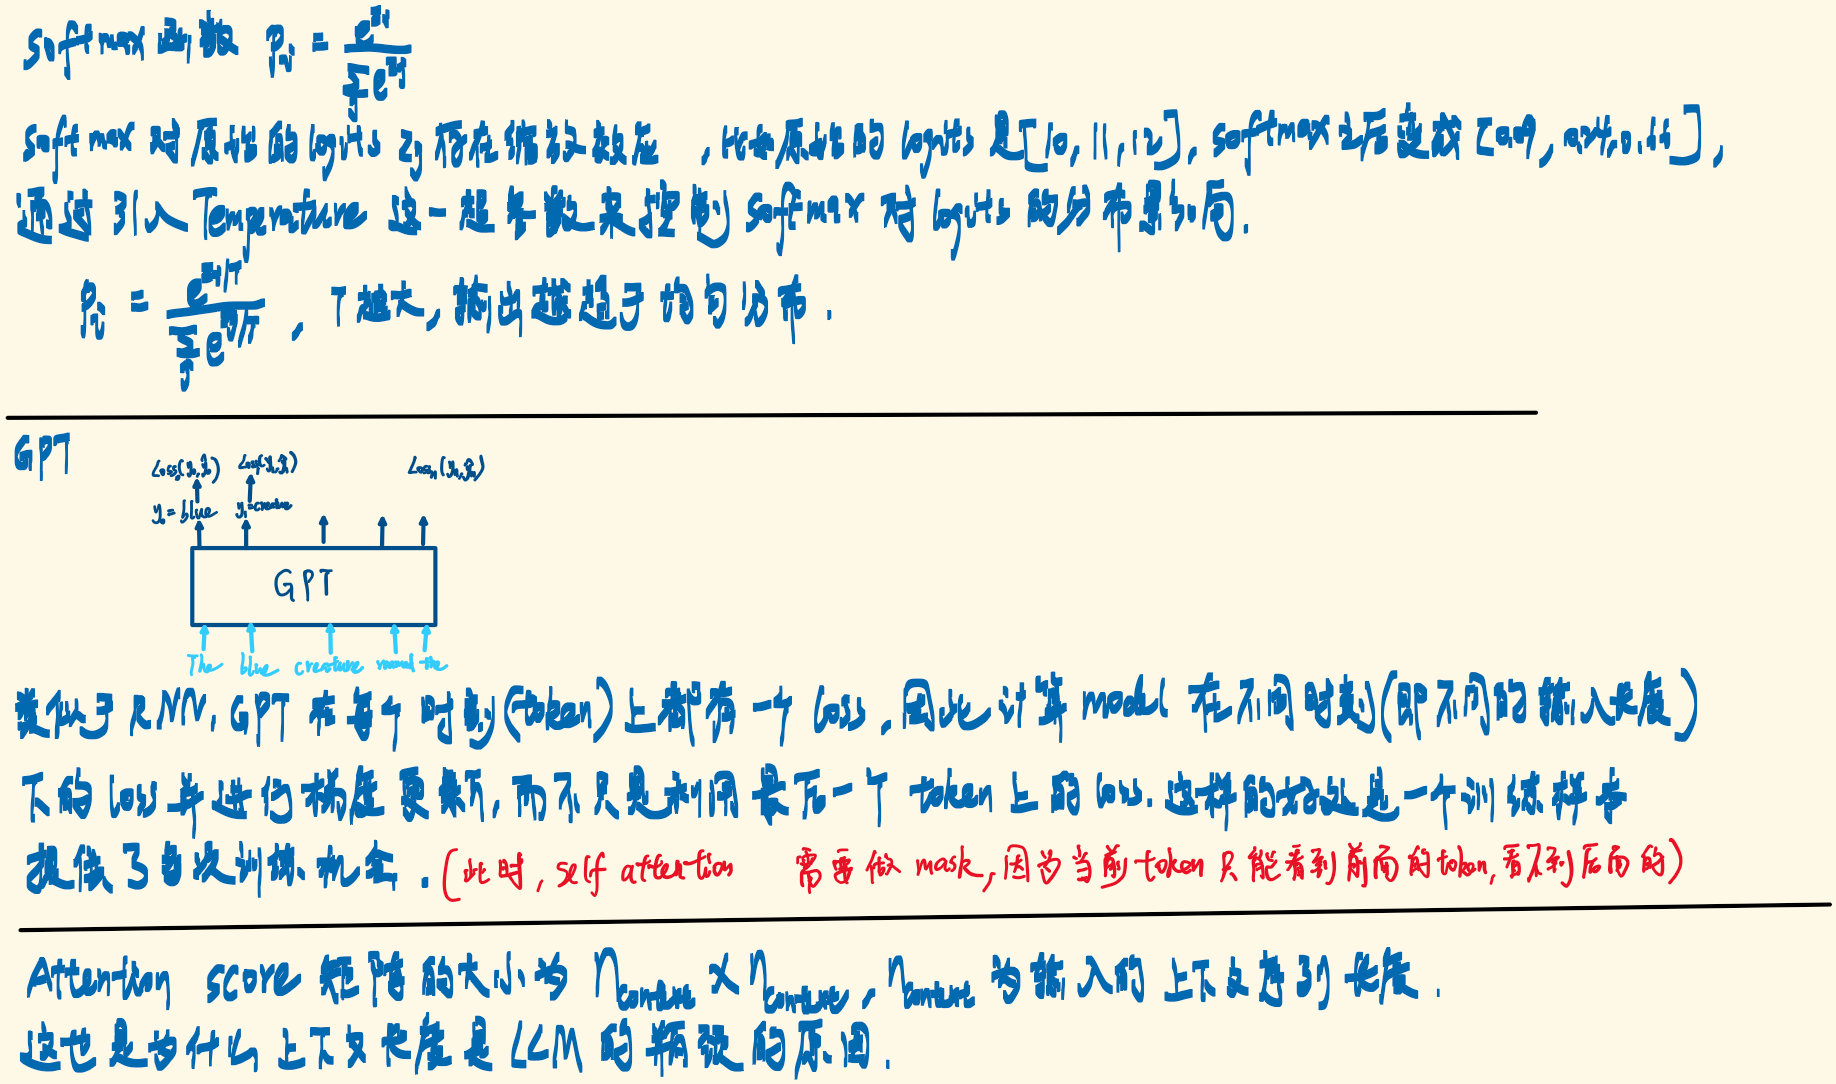 softmax函数 Pᵢ = e^{zᵢ} / Σⱼ e^{zⱼ}
softmax 对原始的logits zⱼ存在缩放效应，比如原始的logits是[10, 11, 12], softmax之后变成[0.09, 0.24, 0.66],
通过引入Temperature 这一超参数来控制softmax对logits的分布影响.
Pᵢ = e^{zᵢ/T} / Σⱼ e^{zⱼ/T}, T越大, 输出越趋于均匀分布.
GPT
Loss(y₀,ŷ₀) Loss(y₁,ŷ₁) Lossₙ(yₙ,ŷₙ)
y₀=blue y₁=creature
GPT
The blue creature the
类似于RNN, GPT在每个时刻(token)上都有一个loss, 因此计算model在不同时刻(即不同的输入长度)
下的loss并进行梯度更新, 而不只是利用最后一个token上的loss. 这样的好处是一个训练样本
提供了多次训练机会. (此时, self attention 需要做mask, 因为当前token只能看到前面的token, 看不到后面的)
Attention score 矩阵的大小为 n_context × n_context, n_context 为输入的上下文序列长度.
这也是为什么上下文长度是LLM的瓶颈的原因.